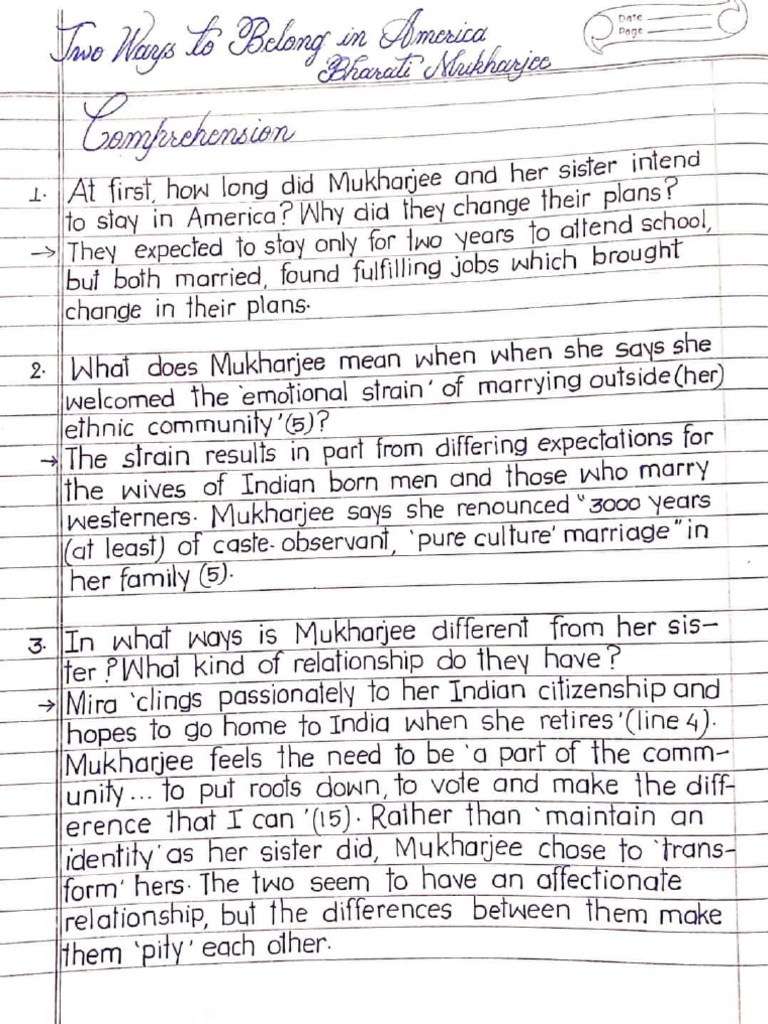 Two Ways to Belong in America
Date
Page
Bharati Mukharjee
Comprehension
1. At first, how long did Mukharjee and her sister intend
to stay in America? Why did they change their plans?
→ They expected to stay only for two years to attend school,
but both married, found fulfilling jobs which brought
change in their plans.
2. What does Mukharjee mean when when she says she
welcomed the 'emotional strain' of marrying outside (her)
ethnic community' (5)?
→ The strain results in part from differing expectations for
the wives of Indian born men and those who marry
westerners. Mukharjee says she renounced "3000 years
(at least) of caste-observant, 'pure culture' marriage" in
her family (5).
3. In what ways is Mukharjee different from her sis-
ter? What kind of relationship do they have?
→ Mira 'clings passionately to her Indian citizenship and
hopes to go home to India when she retires' (line 4).
Mukharjee feels the need to be 'a part of the comm-
unity... to put roots down, to vote and make the diff-
erence that I can' (15). Rather than 'maintain an
identity' as her sister did, Mukharjee chose to 'trans-
form' hers. The two seem to have an affectionate
relationship, but the differences between them make
them 'pity' each other.